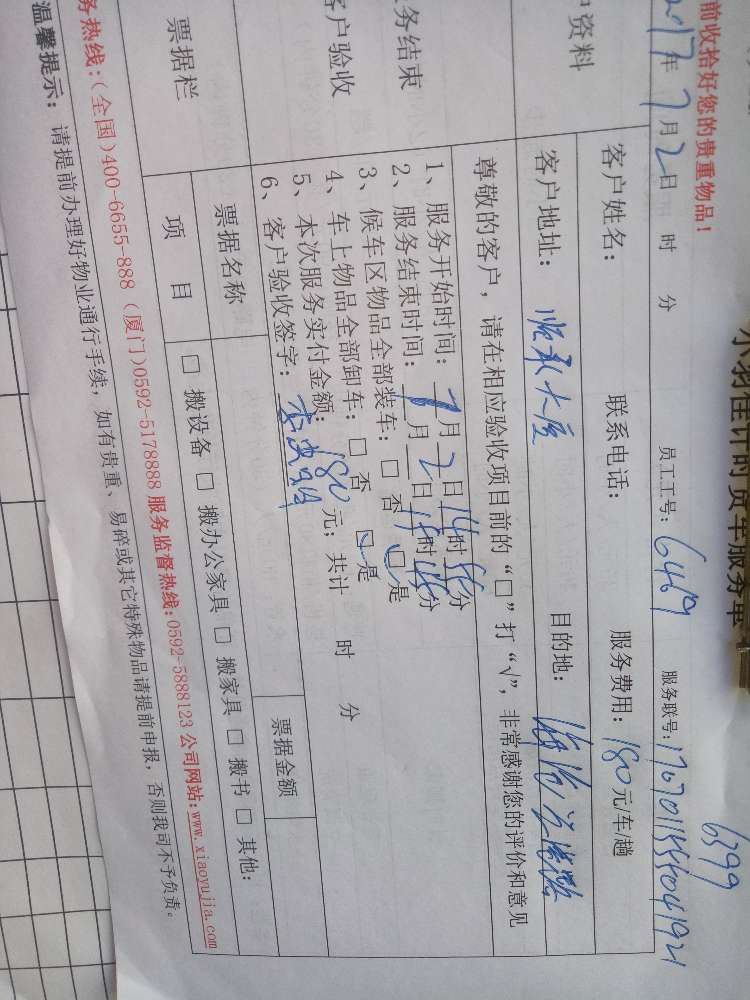 前收拾好您的贵重物品！
小羽佳计时货车服务单
6399
2017年7月2日 时 分 员工工号：6469 服务联号：
户资料
客户姓名： 联系电话： 服务费用：180元/车/趟
客户地址： 目的地：
尊敬的客户，请在相应验收项目前的“□”打“√”，非常感谢您的评价和意见
务结束
客户验收
1、服务开始时间：7月2日14时56分
2、服务结束时间： 月 日 时 分
3、候车区物品全部装车：□ 否 ☑ 是
4、车上物品全部卸车：□ 否 ☑ 是
5、本次服务实付金额：180元；共计 时 分
6、客户验收签字：
票据栏
票据名称 票据金额
项 目 □ 搬设备 □ 搬办公家具 □ 搬家具 □ 搬书 □ 其他：
务热线：（全国）400-6655-888（厦门）0592-5178888 服务监督热线：0592-5888123 公司网站：www.xiaoyujia.com
温馨提示：请提前办理好物业通行手续，如有贵重、易碎或其它特殊物品请提前申报，否则我司不予负责。